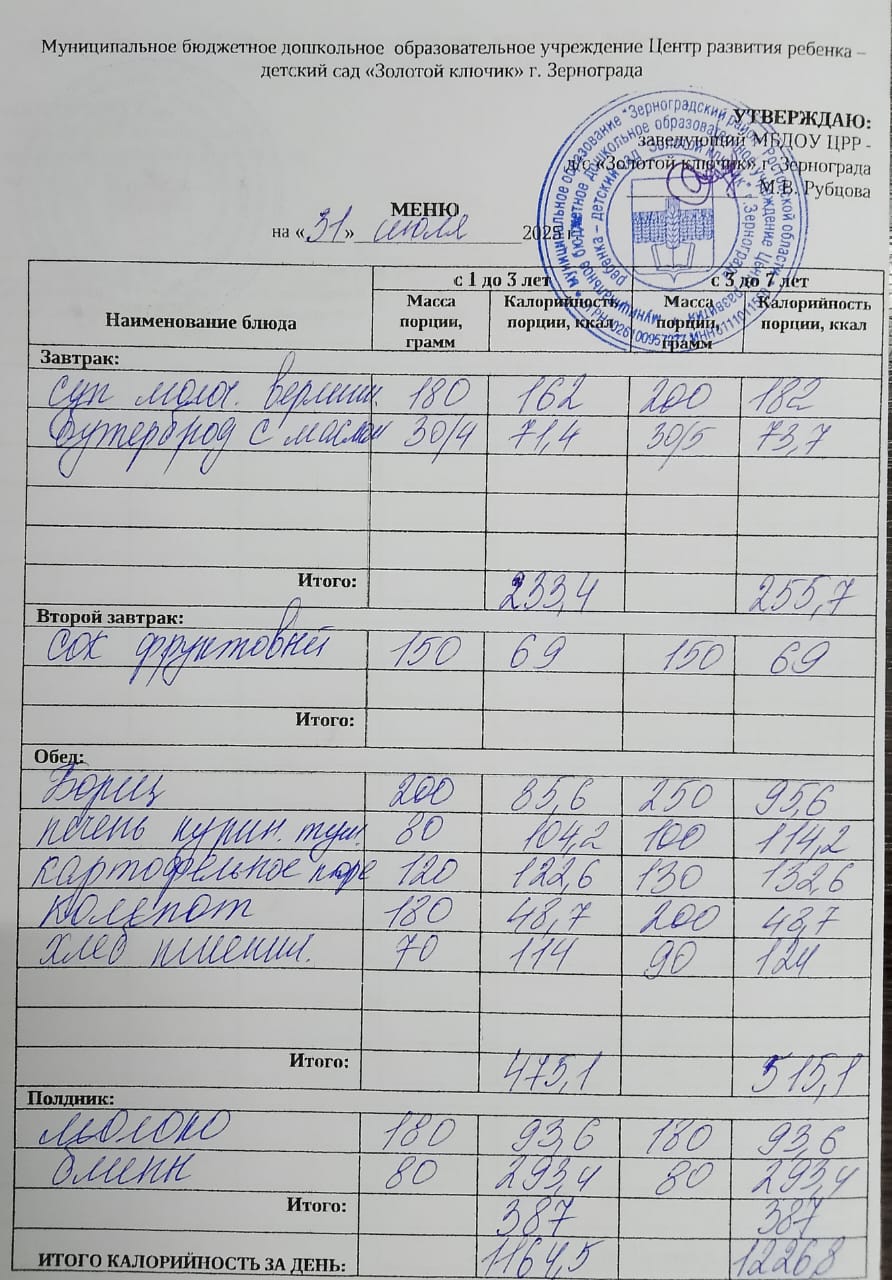 Муниципальное бюджетное дошкольное образовательное учреждение Центр развития ребенка –
детский сад «Золотой ключик» г. Зернограда
УТВЕРЖДАЮ:
заведующий МБДОУ ЦРР -
д/с «Золотой ключик» г. Зернограда
М.В. Рубцова
МЕНЮ
на «31» июля 2025 г.
Наименование блюда с 1 до 3 лет с 3 до 7 лет
Масса порции, грамм Калорийность порции, ккал Масса порции, грамм Калорийность порции, ккал
Завтрак:
суп молоч. вермиш. 180 162 200 182
Бутерброд с маслом 30/4 71,4 30/5 73,7
Итого: 233,4 255,7
Второй завтрак:
сок фруктовый 150 69 150 69
Итого:
Обед:
Борщ 200 85,6 250 95,6
печень курин. туш. 80 104,2 100 114,2
картофельное пюре 120 122,6 130 132,6
компот 180 48,7 200 48,7
хлеб пшенич. 70 114 90 124
Итого: 475,1 515,1
Полдник:
молоко 180 93,6 180 93,6
блины 80 293,4 80 293,4
Итого: 387 387
ИТОГО КАЛОРИЙНОСТЬ ЗА ДЕНЬ: 1164,5 1226,8